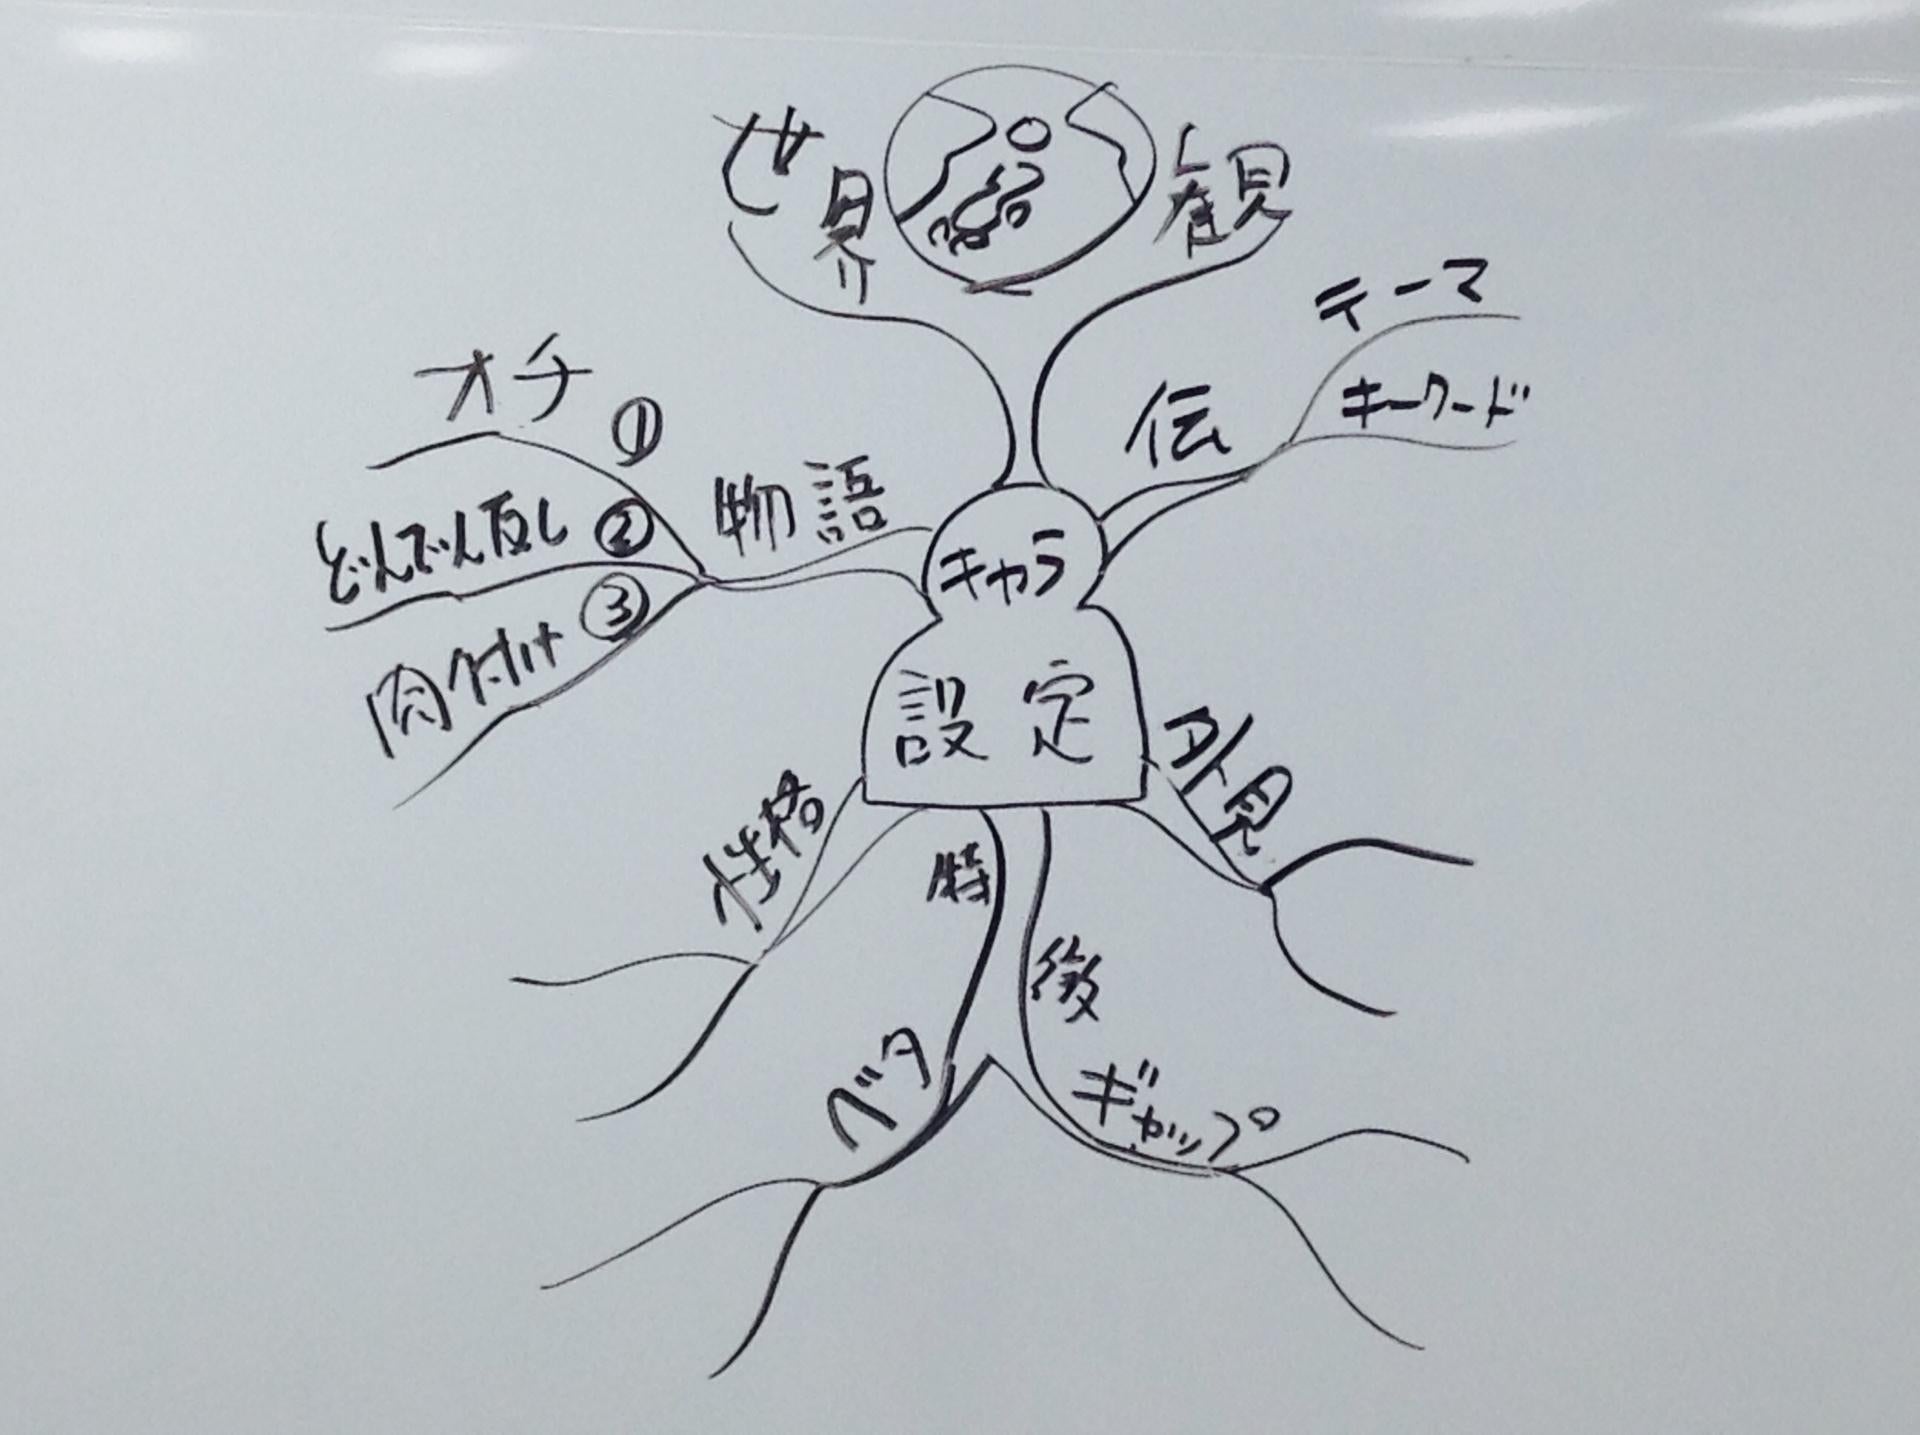 世界観
テーマ
キーワード
伝
オチ ①
どんでん返し ②
肉付け ③
物語
キャラ
設定
外見
性格
特徴
ベタ
ギャップ